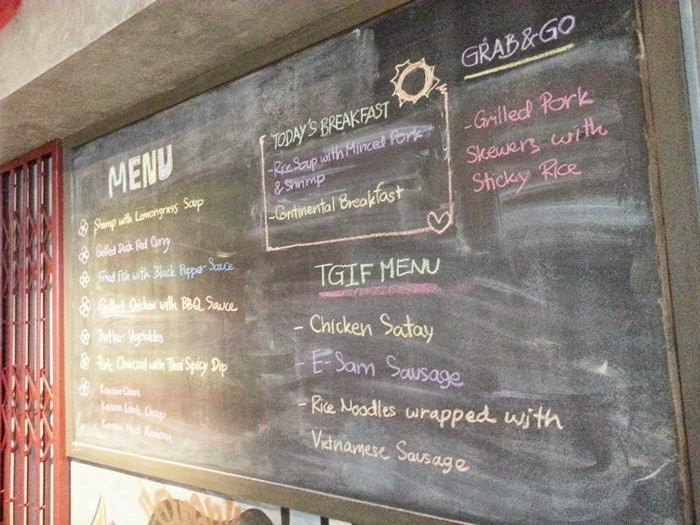 MENU
Shrimp with Lemongrass Soup
Grilled Duck Red Curry
Fried Fish with Black Pepper Sauce
Grilled Chicken with BBQ Sauce
Butter Vegetables
Pork Charcoal with Thai Spicy Dip
Kanom Chan
Kanom Look Choup
Kanom Med Kanoon
TODAY'S BREAKFAST
-Rice Soup with Minced Pork
& Shrimp
-Continental Breakfast
TGIF MENU
- Chicken Satay
- E-Sarn Sausage
- Rice Noodles wrapped with
Vietnamese Sausage
GRAB & GO
-Grilled Pork
Skewers with
Sticky Rice